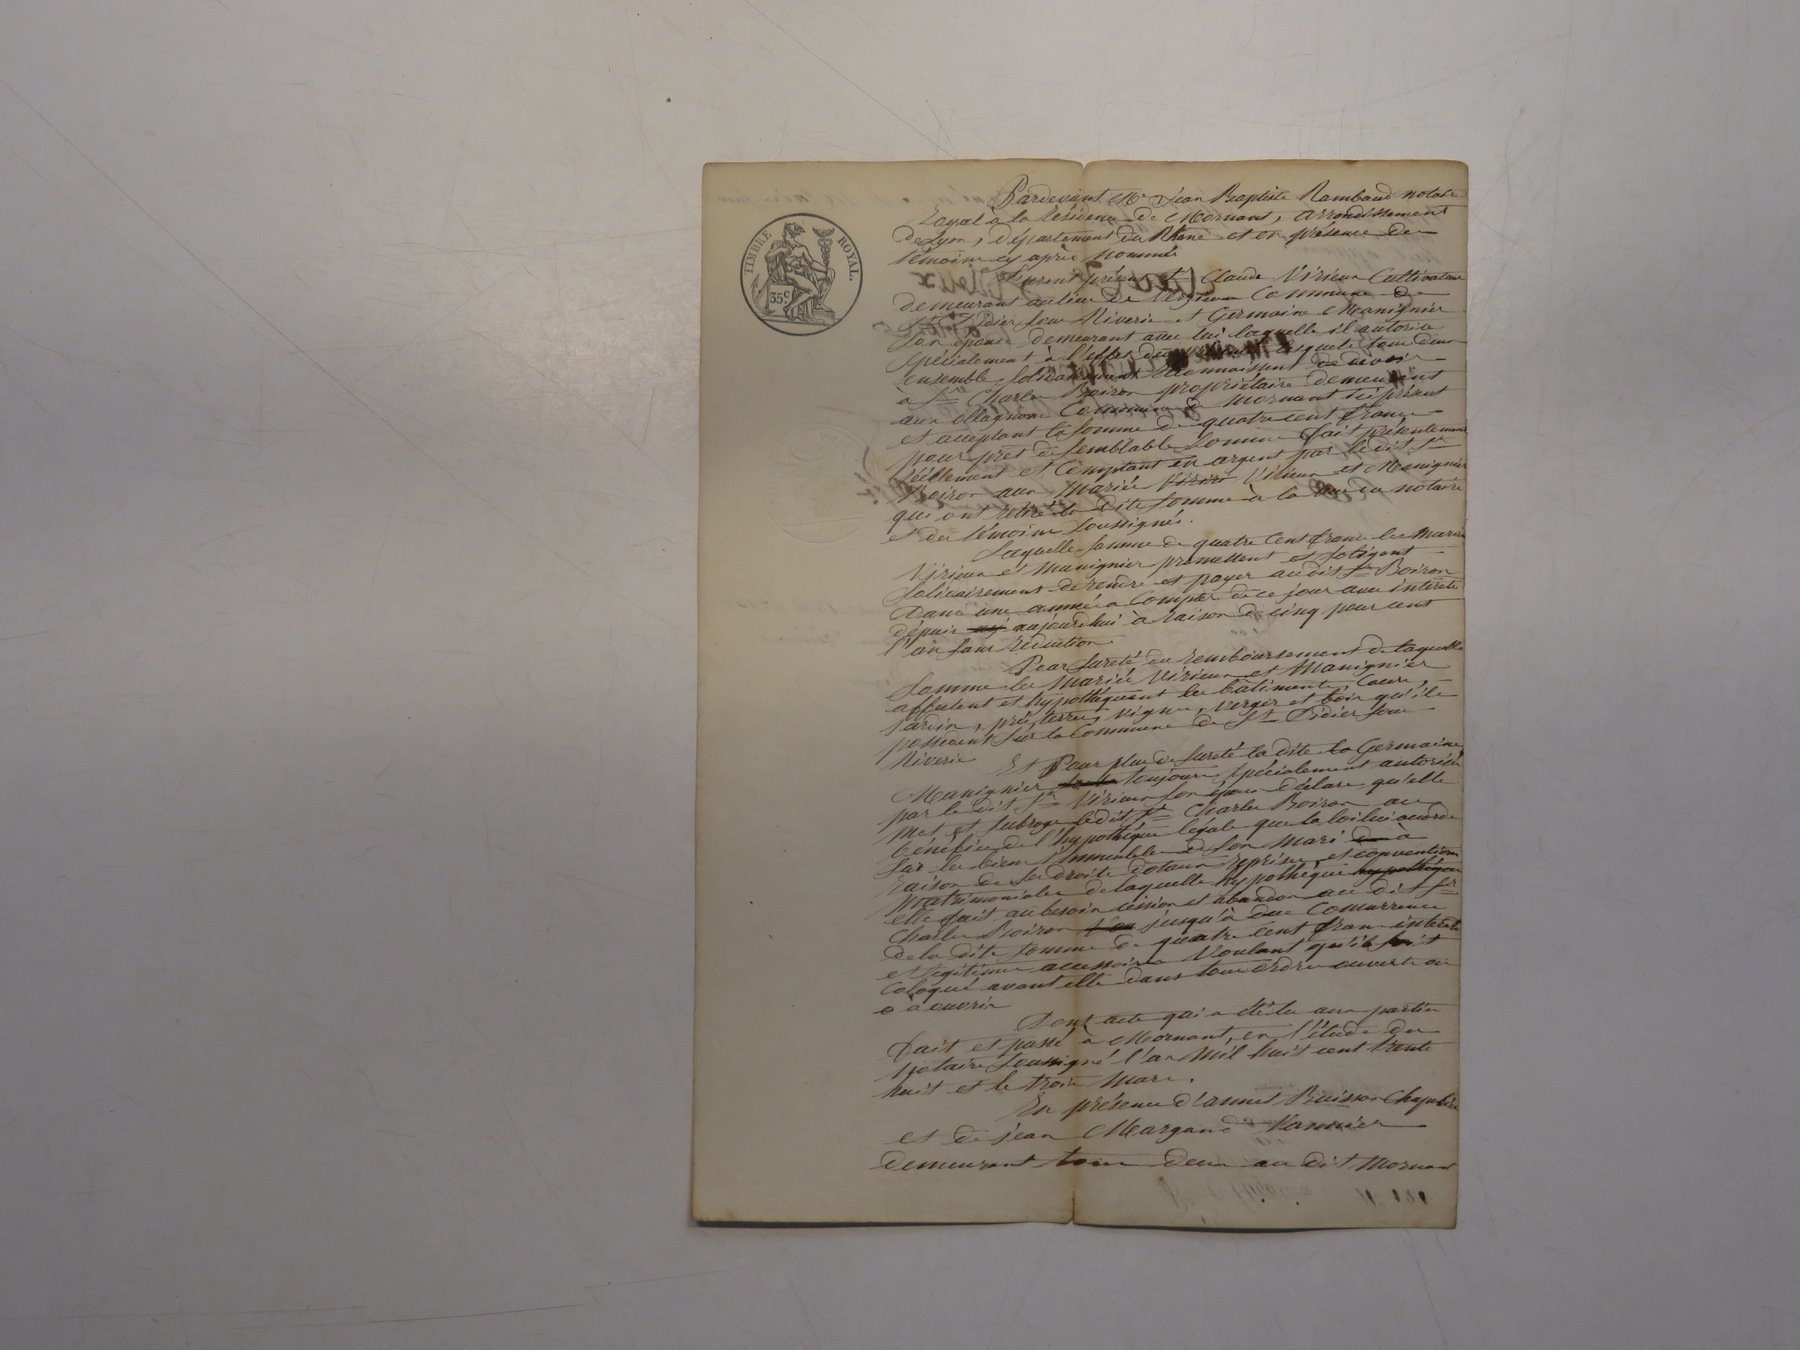 TIMBRE ROYAL.
35c
Pardevant Me Jean Baptiste Rambaud notaire
Royal à la résidence de Mornant, arrondissement
de Lyon, département du Rhône et en présence des
témoins cy après nommés
furent présents Claude Virieux Cultivateur
demeurant au lieu de Commune de
St Didier sous Riverie et Germaine Manignier
son épouse demeurant avec lui laquelle il autorise
spécialement à l'effet des lesquels tous deux
ensemble solidairement reconnaissent de devoir
à Sr Charles Boiron propriétaire demeurant
aux Commune de Mornant ici présent
et acceptant la somme de quatre cent francs
pour prêt de semblable somme fait présentement
réellement et comptant en argent par le dit Sr
Boiron aux mariés Virieux et Manignier
qui ont retiré la dite somme à la vue du notaire
et des témoins soussignés.
Laquelle somme de quatre cent francs les mariés
Virieux et Manignier promettent et s'obligent
solidairement de rendre et payer au dit Sr Boiron
dans une année a compter de ce jour avec intérêts
dépuis aujourd'hui à raison de cinq pour cent
l'an sans réduction.
Pour sureté du remboursement de laquelle
somme les mariés Virieux et Manignier
affectent et hypothéquent les bâtiments, Cours,
Jardin, prés, terres, vignes, verger et bois qu'ils
possèdent sur la Commune de St Didier sous
Riverie
Et Pour plus de sureté la dite la Germaine
Manignier toujours spécialement autorisée
par le dit Sr Virieux son époux déclare qu'elle
met et subroge ledit Sr Charles Boiron au
bénéfice de l'hypothèque légale que la loi lui accorde
sur les biens immeubles de son mari à
raison de ses droits dotaux reprises et conventions
matrimoniales de laquelle hypothèque hypothèque
elle fait au besoin cession et abandon au dit Sr
Charles Boiron jusqu'à due Concurrence
de la dite somme de quatre cent fran intérêts
et légitimes accessoires voulant qu'il soit
coloqué avant elle dans tous ordres ouverts ou
à ouvrir
Dont acte qui a été lu aux parties
fait et passé à Mornant, en l'étude du
Notaire soussigné l'an Mil huit cent trente
huit et le trois Mars.
En présence d'annet Buisson Chapelier
et de jean Margand Vannier
demeurant tous deux au dit Mornant